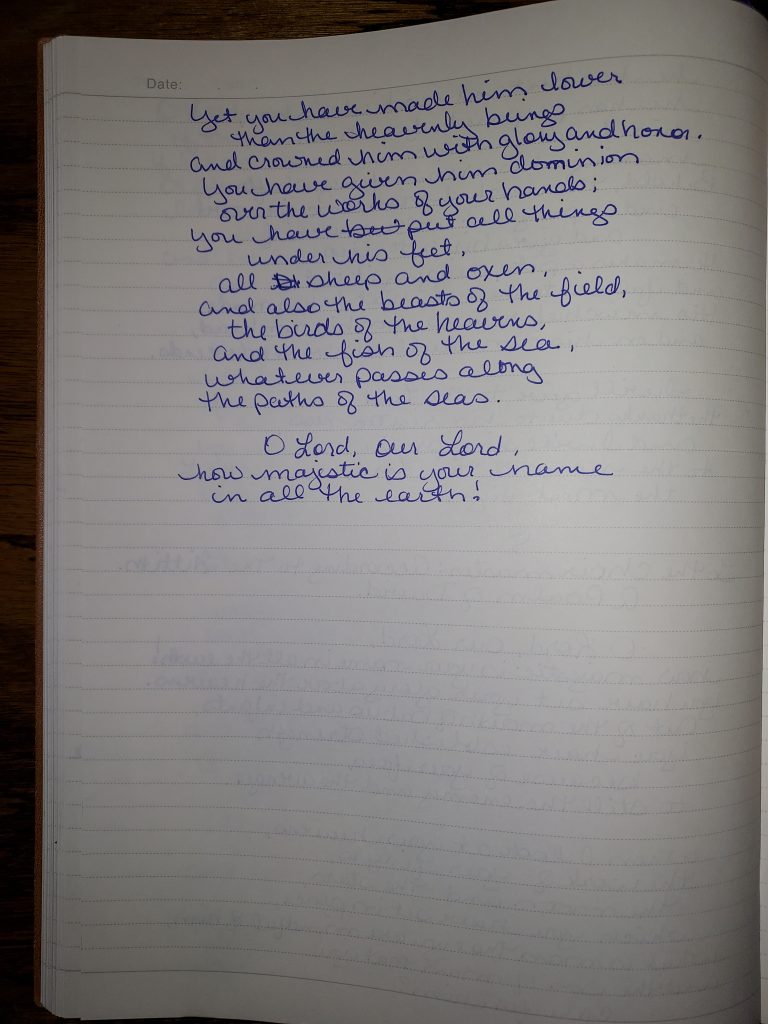 Date:
Yet you have made him lower
than the heavenly beings
and crowned him with glory and honor.
You have given him dominion
over the works of your hands;
you have but put all things
under his feet,
all sheep and oxen,
and also the beasts of the field,
the birds of the heavens,
and the fish of the sea,
whatever passes along
the paths of the seas.
O Lord, our Lord,
how majestic is your name
in all the earth!